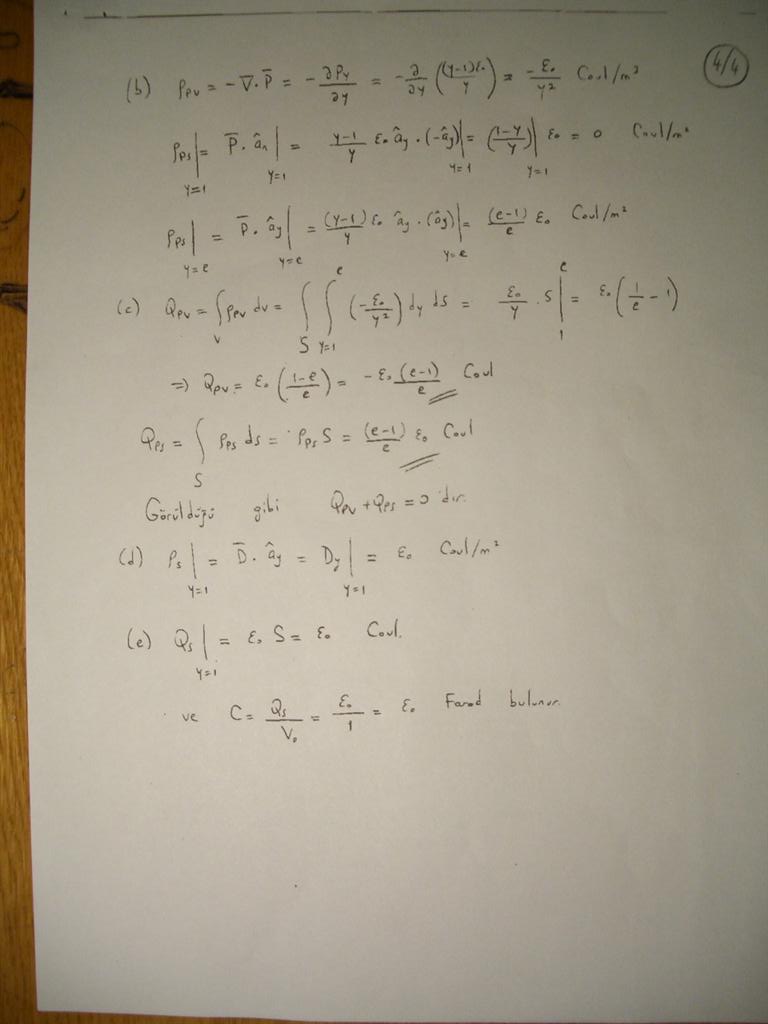 4/4
(b) ρpv = -∇̅·P̅ = -∂Py/∂y = -∂/∂y ((y-1)ε₀/y) = -ε₀/y² Coul/m³
ρps|y=1 = P̅·âₙ|y=1 = y-1/y ε₀ ây·(-ây)|y=1 = (1-y/y)|y=1 ε₀ = 0 Coul/m²
ρps|y=e = P̅·ây|y=e = (y-1)/y ε₀ ây·(ây)|y=e = (e-1)/e ε₀ Coul/m²
(c) Qpv = ∫v ρpv dv = ∫S ∫y=1^e (-ε₀/y²) dy ds = ε₀/y · S|₁^e = ε₀(1/e - 1)
=> Qpv = ε₀ (1-e/e) = -ε₀ (e-1)/e Coul
Qps = ∫S ρps ds = ρps S = (e-1)/e ε₀ Coul
Görüldüğü gibi Qpv + Qps = 0 'dır.
(d) ρs|y=1 = D̅·ây = Dy|y=1 = ε₀ Coul/m²
(e) Qs|y=1 = ε₀ S = ε₀ Coul.
ve C = Qs/V₀ = ε₀/1 = ε₀ Farad bulunur.